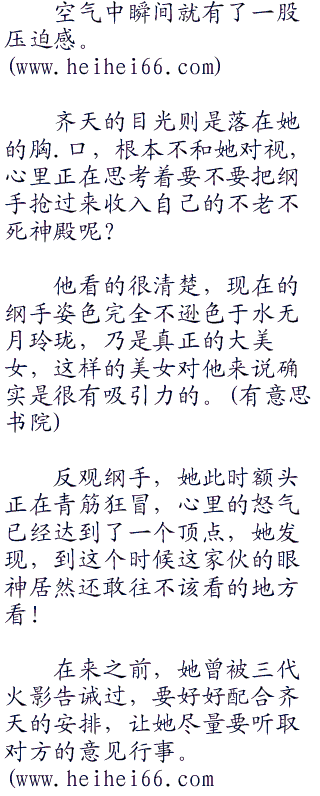 空气中瞬间就有了一股
压迫感。
(www.heihei66.com)
齐天的目光则是落在她
的胸.口，根本不和她对视，
心里正在思考着要不要把纲
手抢过来收入自己的不老不
死神殿呢？
他看的很清楚，现在的
纲手姿色完全不逊色于水无
月玲珑，乃是真正的大美
女，这样的美女对他来说确
实是很有吸引力的。(有意思
书院)
反观纲手，她此时额头
正在青筋狂冒，心里的怒气
已经达到了一个顶点，她发
现，到这个时候这家伙的眼
神居然还敢往不该看的地方
看！
在来之前，她曾被三代
火影告诫过，要好好配合齐
天的安排，让她尽量要听取
对方的意见行事。
(www.heihei66.com